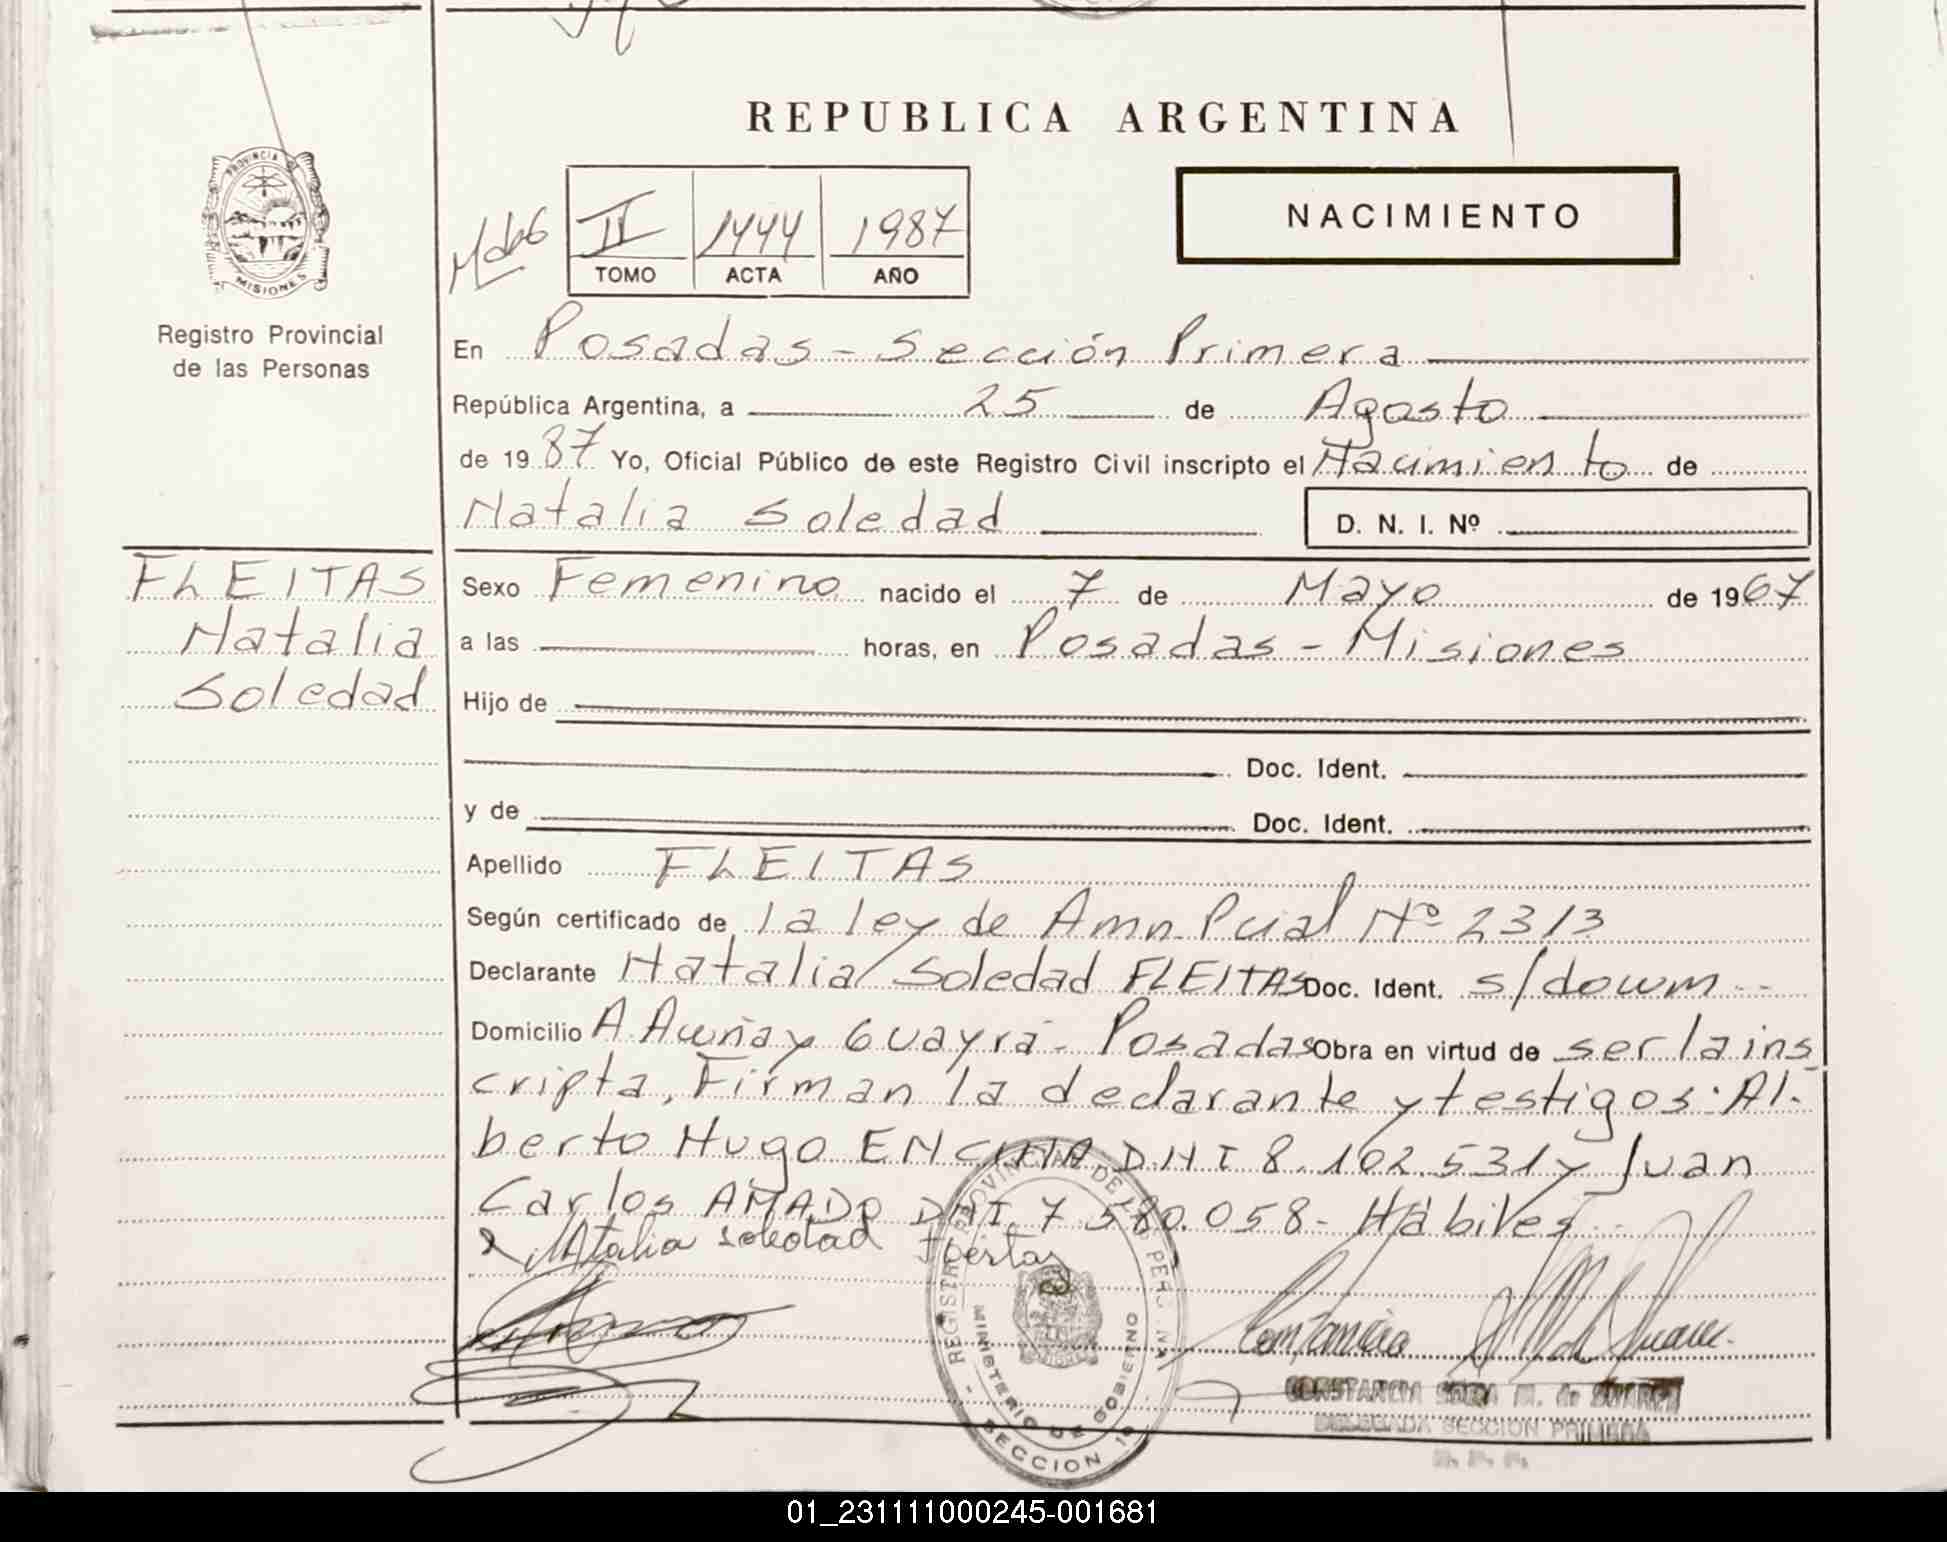 REPUBLICA ARGENTINA
PROVINCIA DE
MISIONES
Registro Provincial
de las Personas
II 1444 1987
TOMO ACTA AÑO
NACIMIENTO
En Posadas - Sección Primera
República Argentina, a 25 de Agosto
de 1987 Yo, Oficial Público de este Registro Civil inscripto el Nacimiento de
Natalia Soledad D. N. I. Nº
FLEITAS
Natalia
Soledad
Sexo Femenino nacido el 7 de Mayo de 1967
a las horas, en Posadas - Misiones
Hijo de
Doc. Ident.
y de Doc. Ident.
Apellido FLEITAS
Según certificado de la ley de Amn. Pcial Nº 2313
Declarante Natalia Soledad FLEITAS Doc. Ident. s/docum --
Domicilio A. Acuña y Guayrá - Posadas Obra en virtud de ser la ins
cripta, Firman la declarante y testigos: Al-
berto Hugo ENCINA DNI 8.102.531 y Juan
Carlos AMADO DNI 7.580.058 - Hábiles
x Natalia Soledad
Constancia
REGISTRO PROVINCIAL DE LAS PERS
MINISTERIO DE GOBIERNO
SECCION 1ª
CONSTANCIA SARA M. de SUAREZ
DELEGADA SECCION PRIMERA
R. P. P.
01_231111000245-001681